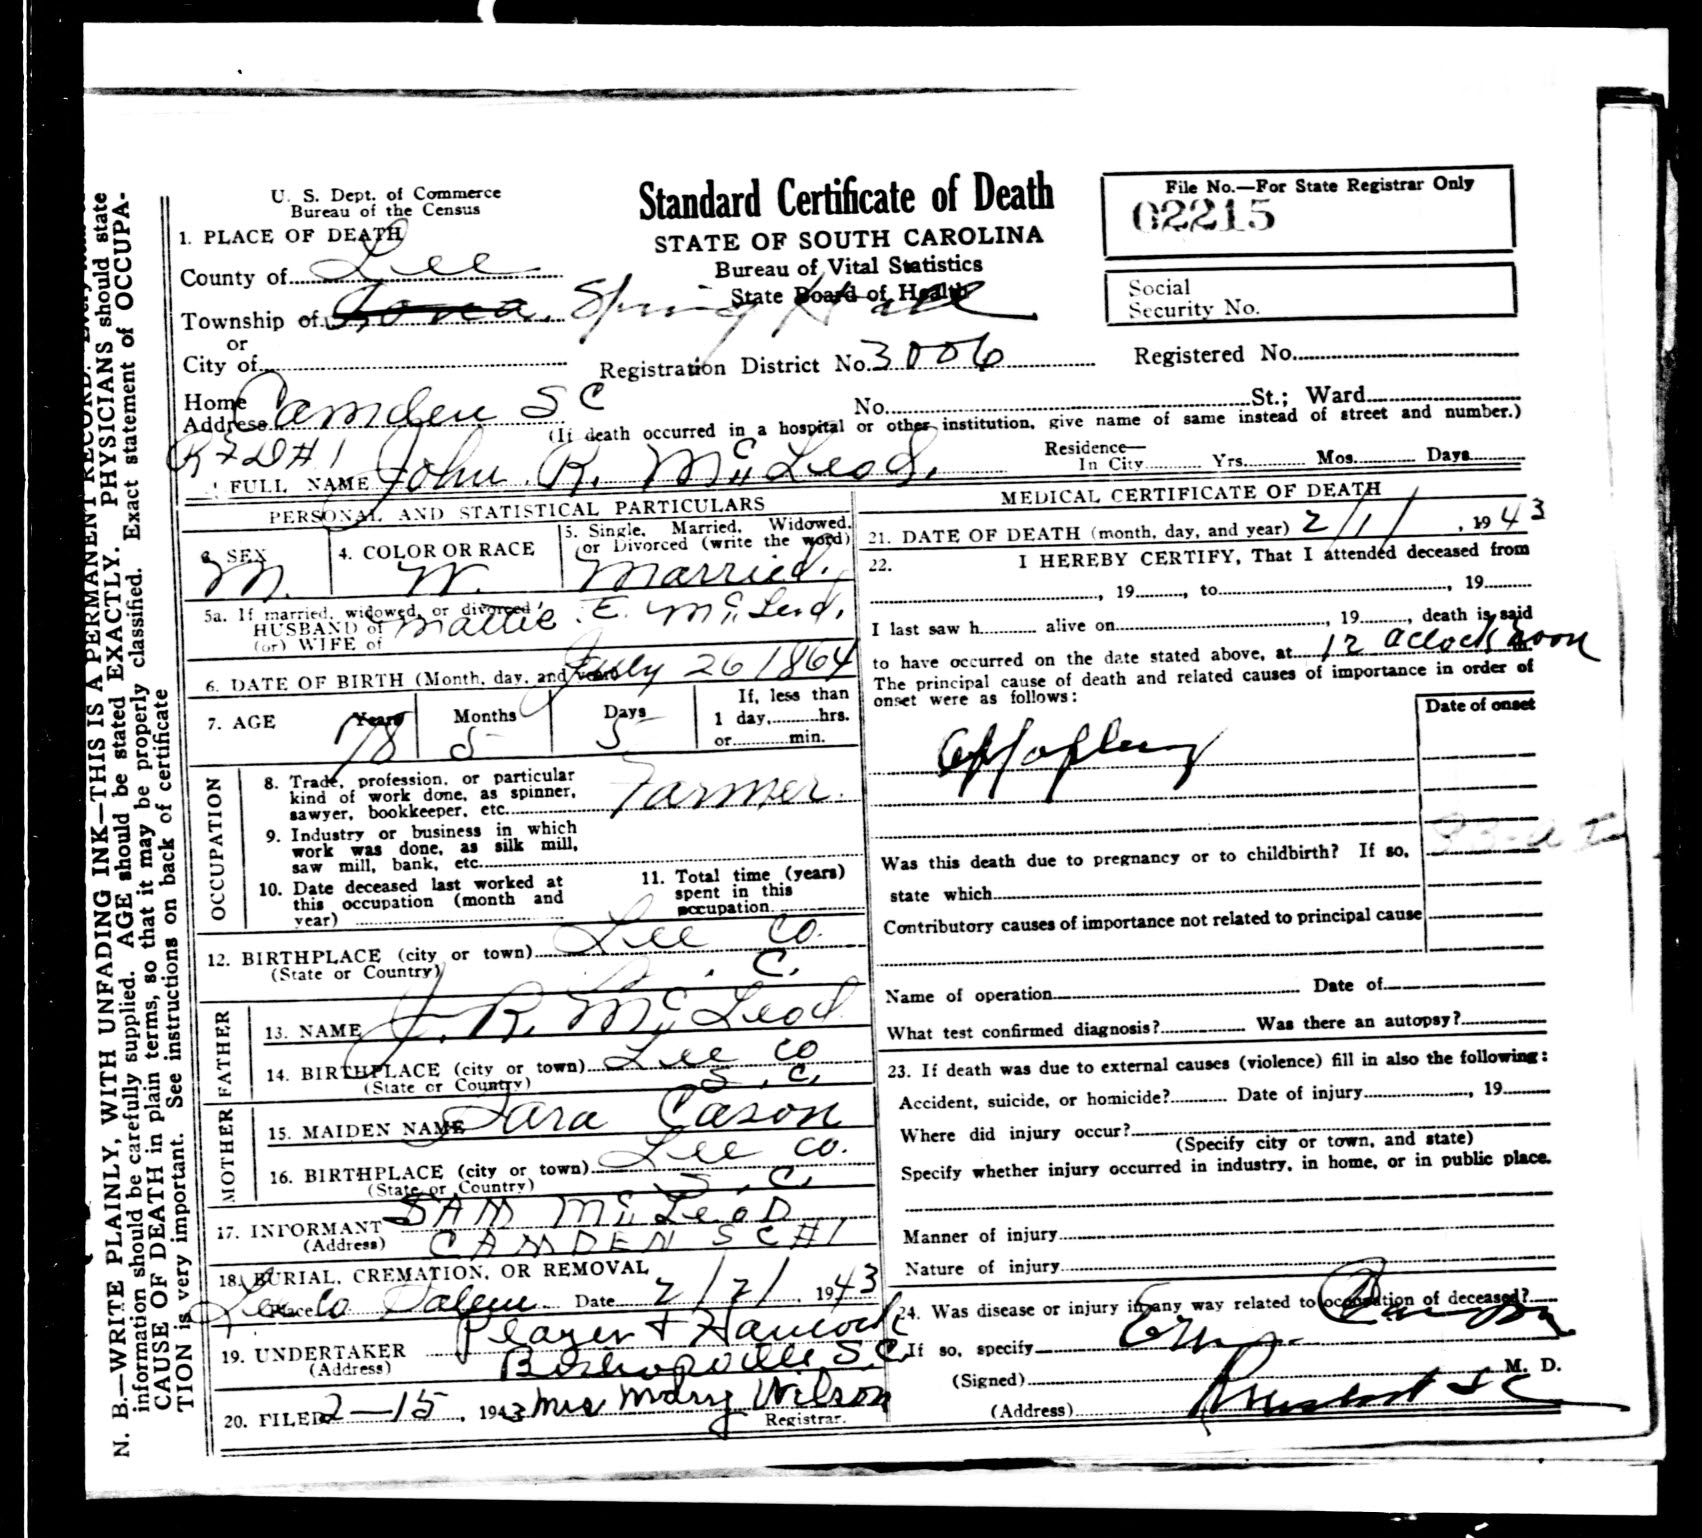 U. S. Dept. of Commerce
Bureau of the Census
Standard Certificate of Death
STATE OF SOUTH CAROLINA
Bureau of Vital Statistics
State Board of Health
File No.—For State Registrar Only
02215
Social
Security No.
1. PLACE OF DEATH
County of Lee
Township of Spring Hill
or
City of
Registration District No. 3006
Registered No.
Home
Address Camden S C
R F D # 1
No. St.; Ward
(If death occurred in a hospital or other institution, give name of same instead of street and number.)
Residence—
In City Yrs. Mos. Days
FULL NAME John R. McLeod.
PERSONAL AND STATISTICAL PARTICULARS
3. SEX
M.
4. COLOR OR RACE
W.
5. Single, Married, Widowed,
or Divorced (write the word)
Married.
5a. If married, widowed, or divorced
HUSBAND of Mattie E. McLeod.
(or) WIFE of
6. DATE OF BIRTH (Month, day, and year) July 26 1864
7. AGE
Years 78
Months 5
Days 5
If, less than
1 day, hrs.
or min.
OCCUPATION
8. Trade, profession, or particular
kind of work done, as spinner,
sawyer, bookkeeper, etc. Farmer.
9. Industry or business in which
work was done, as silk mill,
saw mill, bank, etc.
10. Date deceased last worked at
this occupation (month and
year)
11. Total time (years)
spent in this
occupation
12. BIRTHPLACE (city or town) Lee Co.
(State or Country) S. C.
FATHER
13. NAME J. R. McLeod
14. BIRTHPLACE (city or town) Lee Co
(State or Country) S. C.
MOTHER
15. MAIDEN NAME Sara Cason
16. BIRTHPLACE (city or town) Lee Co.
(State or Country) S. C.
17. INFORMANT SAM McLEOD
(Address) CAMDEN S C # 1
18. BURIAL, CREMATION, OR REMOVAL
Place Salem Date 2/2/, 1943
19. UNDERTAKER Player + Hancock
(Address) Bishopville S.C.
20. FILED 2—15, 1943 Mrs Mary Wilson
Registrar.
MEDICAL CERTIFICATE OF DEATH
21. DATE OF DEATH (month, day, and year) 2/1/, 1943
22. I HEREBY CERTIFY, That I attended deceased from
, 19 , to , 19
I last saw h alive on , 19 , death is said
to have occurred on the date stated above, at 12 oclock noon
The principal cause of death and related causes of importance in order of
onset were as follows:
Date of onset
Was this death due to pregnancy or to childbirth? If so,
state which
Contributory causes of importance not related to principal cause
Name of operation Date of
What test confirmed diagnosis? Was there an autopsy?
23. If death was due to external causes (violence) fill in also the following:
Accident, suicide, or homicide? Date of injury , 19
Where did injury occur?
(Specify city or town, and state)
Specify whether injury occurred in industry, in home, or in public place.
Manner of injury
Nature of injury
24. Was disease or injury in any way related to occupation of deceased?
If so, specify
(Signed) M. D.
(Address) S C
N. B.—WRITE PLAINLY, WITH UNFADING INK—THIS IS A PERMANENT RECORD.
information should be carefully supplied. AGE should be stated EXACTLY. PHYSICIANS should state
CAUSE OF DEATH in plain terms, so that it may be properly classified. Exact statement of OCCUPA-
TION is very important. See instructions on back of certificate